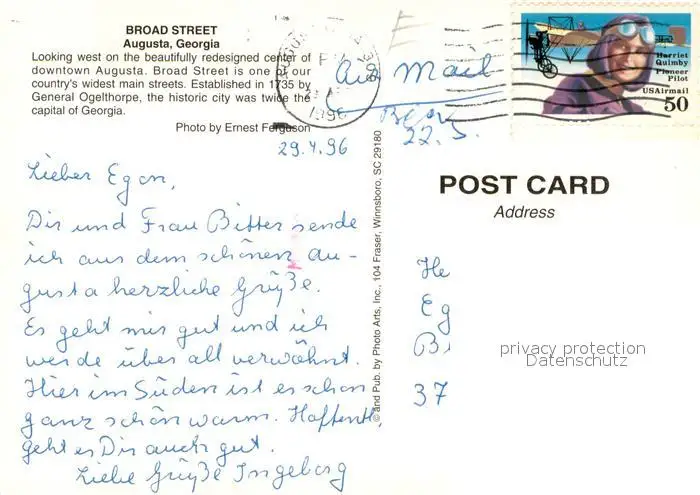 BROAD STREET
Augusta, Georgia
Looking west on the beautifully redesigned center of
downtown Augusta. Broad Street is one of our
country's widest main streets. Established in 1735 by
General Ogelthorpe, the historic city was twice the
capital of Georgia.
Photo by Ernest Ferguson
1996
Air Mail
22. 5.
Harriet
Quimby
Pioneer
Pilot
USAirmail
50
29.4.96
Lieber Egon,
Dir und Frau Bitter sende
ich aus dem schönen Au-
gusta herzliche Grüße.
Es geht mir gut und ich
werde überall verwöhnt.
Hier im Süden ist es schon
ganz schön warm. Hoffentl.
geht es Dir auch gut.
Liebe Grüße Ingeborg
© and Pub. by Photo Arts, Inc., 104 Fraser, Winnsboro, SC 29180
POST CARD
Address
He
Eg
37
privacy protection
Datenschutz